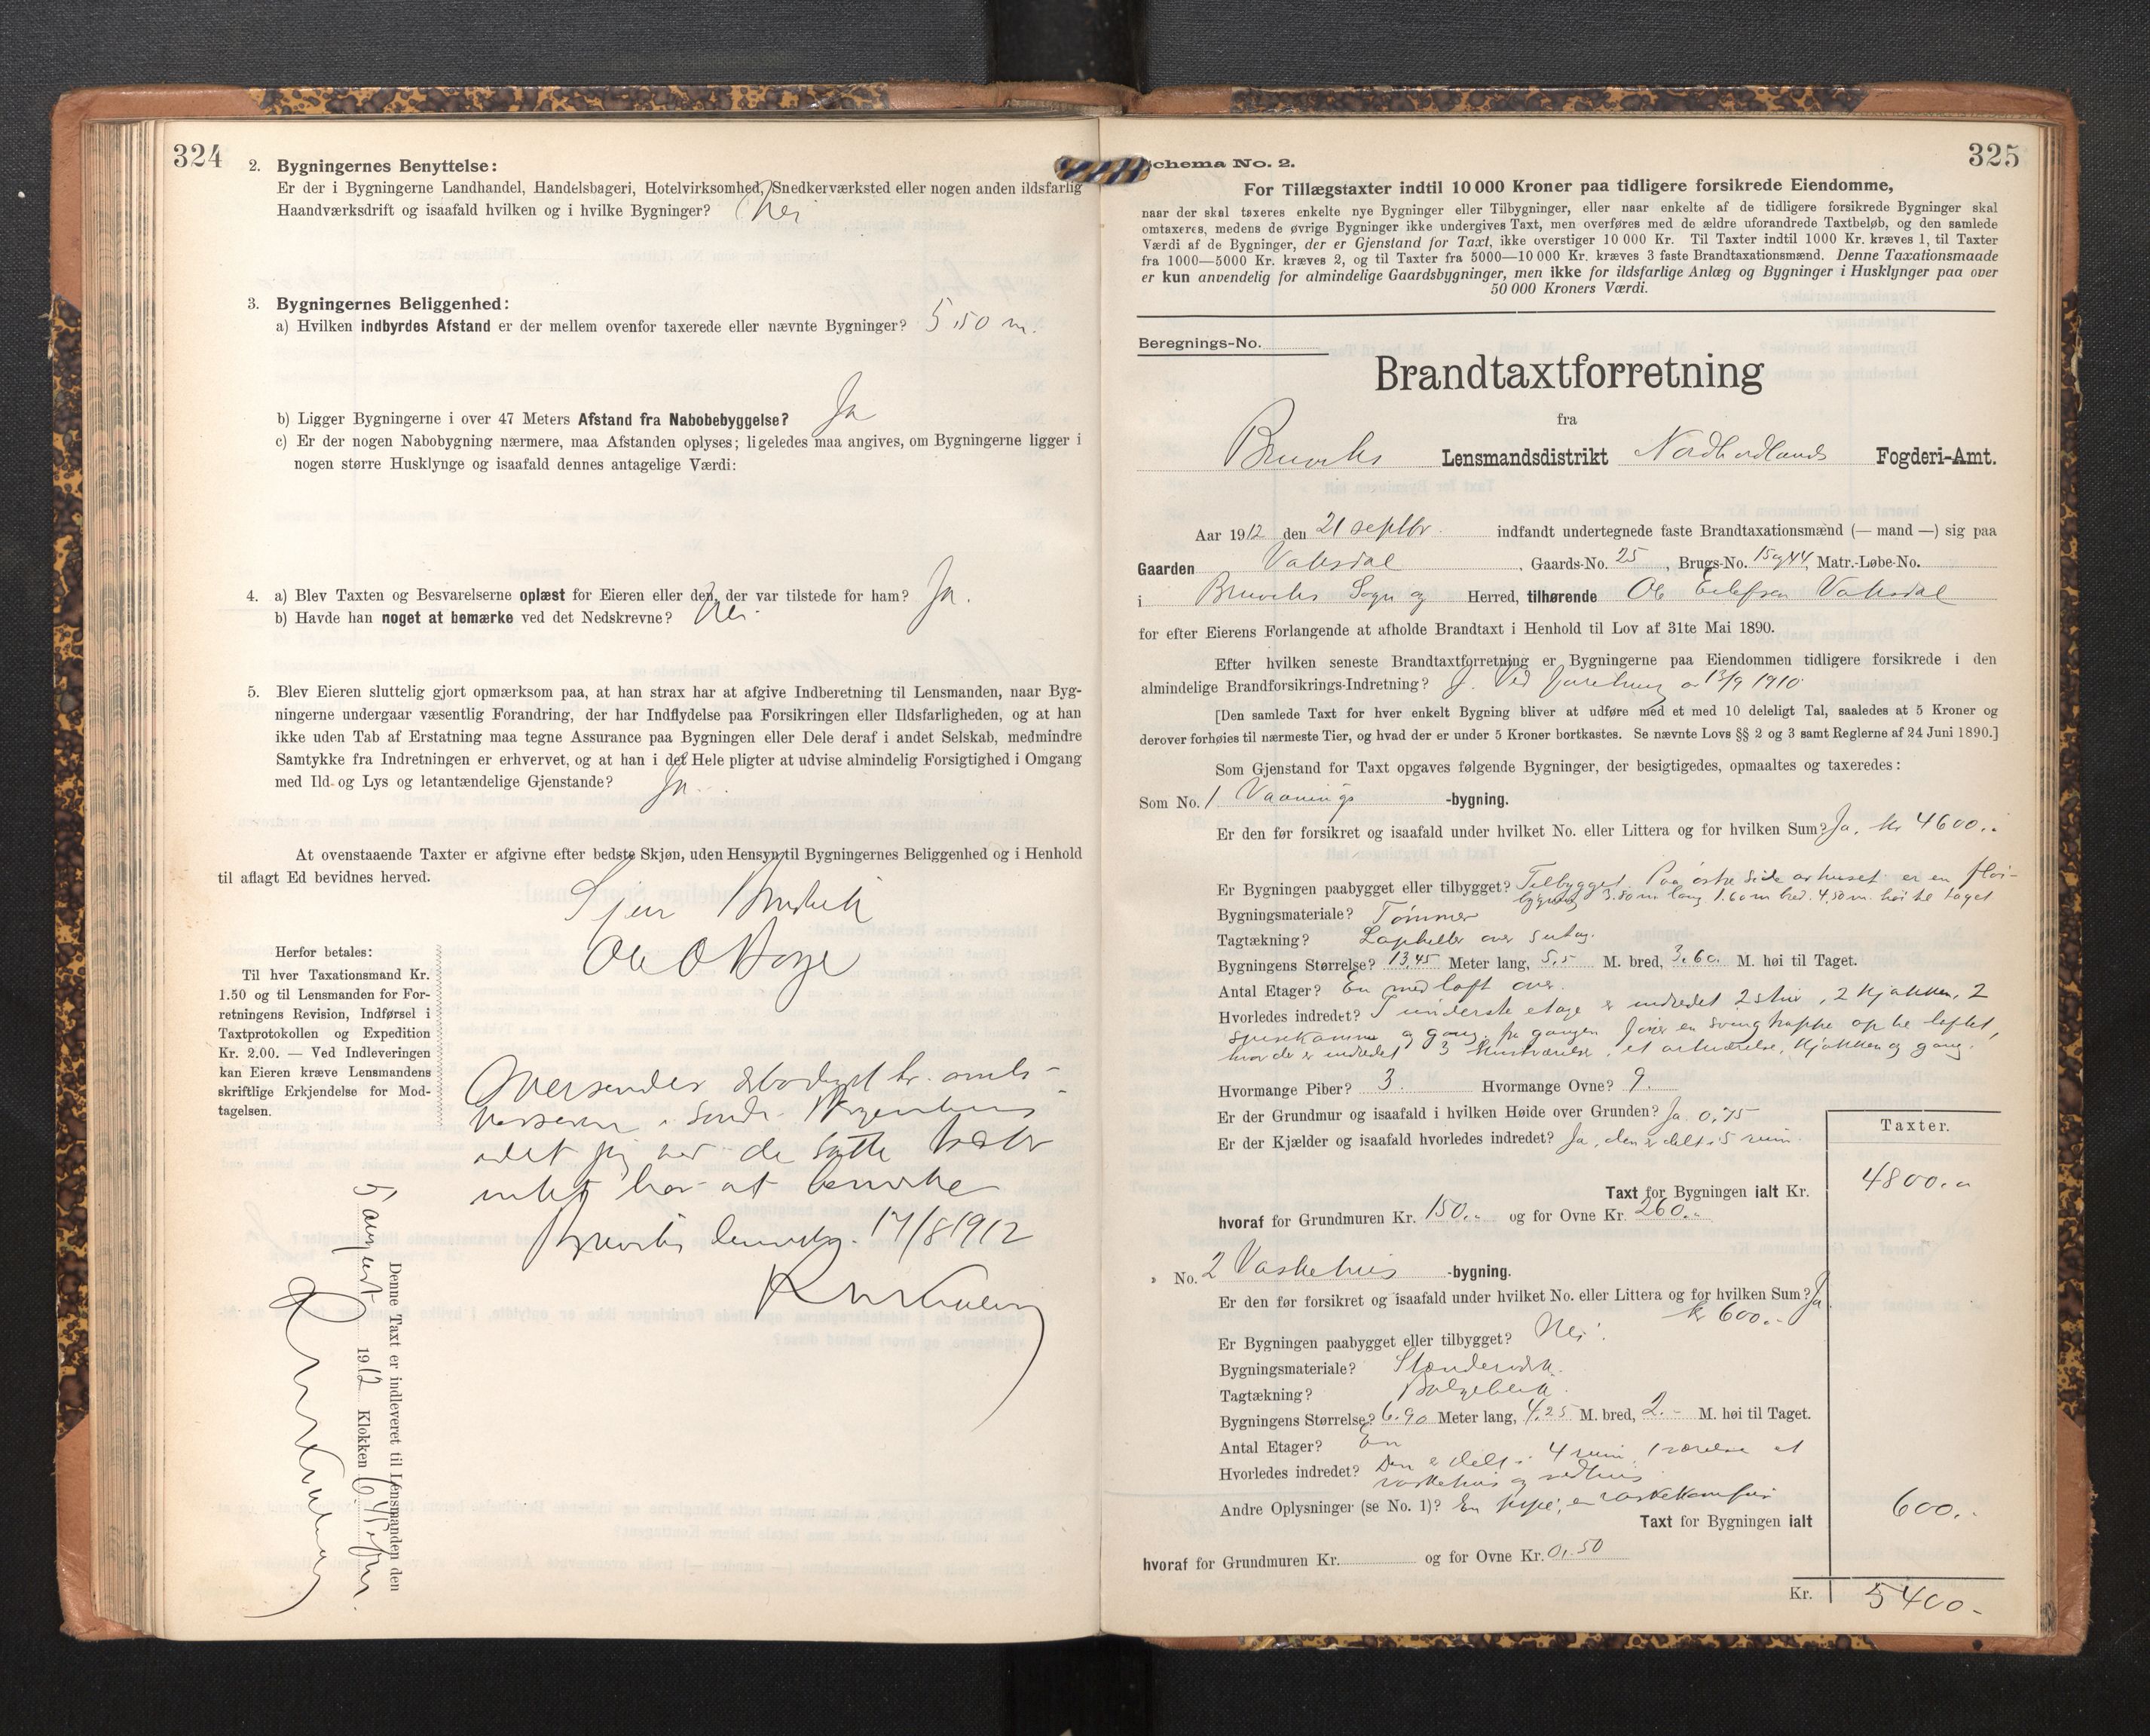 324
2. Bygningernes Benyttelse:
Er der i Bygningerne Landhandel, Handelsbageri, Hotelvirksomhed, Snedkerværksted eller nogen anden ildsfarlig
Haandværksdrift og isaafald hvilken og i hvilke Bygninger? Nei
3. Bygningernes Beliggenhed:
a) Hvilken indbyrdes Afstand er der mellem ovenfor taxerede eller nævnte Bygninger? 5,50 m.
b) Ligger Bygningerne i over 47 Meters Afstand fra Nabobebyggelse? Ja
c) Er der nogen Nabobygning nærmere, maa Afstanden oplyses; ligeledes maa angives, om Bygningerne ligger i
nogen større Husklynge og isaafald dennes antagelige Værdi:
4. a) Blev Taxten og Besvarelserne oplæst for Eieren eller den, der var tilstede for ham? Ja.
b) Havde han noget at bemærke ved det Nedskrevne? Nei
5. Blev Eieren sluttelig gjort opmærksom paa, at han strax har at afgive Indberetning til Lensmanden, naar Byg-
ningerne undergaar væsentlig Forandring, der har Indflydelse paa Forsikringen eller Ildsfarligheden, og at han
ikke uden Tab af Erstatning maa tegne Assurance paa Bygningen eller Dele deraf i andet Selskab, medmindre
Samtykke fra Indretningen er erhvervet, og at han i det Hele pligter at udvise almindelig Forsigtighed i Omgang
med Ild og Lys og letantændelige Gjenstande? Ja.
At ovenstaaende Taxter er afgivne efter bedste Skjøn, uden Hensyn til Bygningernes Beliggenhed og i Henhold
til aflagt Ed bevidnes herved.
Ole O
Herfor betales:
Til hver Taxationsmand Kr.
1.50 og til Lensmanden for For-
retningens Revision, Indførsel i
Taxtprotokollen og Expedition
Kr. 2.00. — Ved Indleveringen
kan Eieren kræve Lensmandens
skriftlige Erkjendelse for Mod-
tagelsen.
Oversendes
idet jeg ved de satte takster
intet har at bemerke
17/8 1912
Denne Taxt er indleveret til Lensmanden den
5 august 1912 Klokken 6
Schema No. 2.
325
For Tillægstaxter indtil 10 000 Kroner paa tidligere forsikrede Eiendomme,
naar der skal taxeres enkelte nye Bygninger eller Tilbygninger, eller naar enkelte af de tidligere forsikrede Bygninger skal
omtaxeres, medens de øvrige Bygninger ikke undergives Taxt, men overføres med de ældre uforandrede Taxtbeløb, og den samlede
Værdi af de Bygninger, der er Gjenstand for Taxt, ikke overstiger 10 000 Kr. Til Taxter indtil 1000 Kr. kræves 1, til Taxter
fra 1000—5000 Kr. kræves 2, og til Taxter fra 5000—10 000 Kr. kræves 3 faste Brandtaxationsmænd. Denne Taxationsmaade
er kun anvendelig for almindelige Gaardsbygninger, men ikke for ildsfarlige Anlæg og Bygninger i Husklynger paa over
50 000 Kroners Værdi.
Beregnings-No.
Brandtaxtforretning
fra
Bruviks Lensmandsdistrikt Nordhordlands Fogderi-Amt.
Aar 1912 den 21 septbr. indfandt undertegnede faste Brandtaxationsmænd (— mand —) sig paa
Gaarden Vaksdal, Gaards-No. 25, Brugs-No. 15 og 44, Matr.-Løbe-No.
i Bruviks Sogn og Herred, tilhørende Ole Eilefsen Vaksdal
for efter Eierens Forlangende at afholde Brandtaxt i Henhold til Lov af 31te Mai 1890.
Efter hvilken seneste Brandtaxtforretning er Bygningerne paa Eiendommen tidligere forsikrede i den
almindelige Brandforsikrings-Indretning? J. Ved forretning av 13/9 1910
[Den samlede Taxt for hver enkelt Bygning bliver at udføre med et med 10 deleligt Tal, saaledes at 5 Kroner og
derover forhøies til nærmeste Tier, og hvad der er under 5 Kroner bortkastes. Se nævnte Lovs §§ 2 og 3 samt Reglerne af 24 Juni 1890.]
Som Gjenstand for Taxt opgaves følgende Bygninger, der besigtigedes, opmaaltes og taxeredes:
Som No. 1 Vaanings -bygning.
Er den før forsikret og isaafald under hvilket No. eller Littera og for hvilken Sum? Ja. kr 4600..
Er Bygningen paabygget eller tilbygget? Tilbygget. Paa østre side av huset er en fløi-
bygning 3.80 m lang 1.60 m bred. 4,50 m. høi til taget
Bygningsmateriale? Tømmer
Tagtækning? Lapheller over sutag.
Bygningens Størrelse? 13,45 Meter lang, 5,5 M. bred, 3,60 M. høi til Taget.
Antal Etager? En med loft over.
Hvorledes indret? I underste etage er indredet 2 stuer, 2 kjøkken, 2
spisekammer og gang. fra gangen fører en svingtrappe op til loftet,
hvor der er indredet 3 et arbværelse, kjøkken og gang.
Hvormange Piber? 3. Hvormange Ovne? 9.
Er der Grundmur og isaafald i hvilken Høide over Grunden? Ja 0,75
Er der Kjælder og isaafald hvorledes indredet? Ja, den er delt i 5 rum.
Taxter.
Taxt for Bygningen ialt Kr. 4800.
hvoraf for Grundmuren Kr. 150.. og for Ovne Kr. 260..
» No. 2 Vaskehus -bygning.
Er den før forsikret og isaafald under hvilket No. eller Littera og for hvilken Sum? Ja
kr 600.-
Er Bygningen paabygget eller tilbygget? Nei.
Bygningsmateriale? Stenderverk.
Tagtækning? Bølgeblik.
Bygningens Størrelse? 6.90 Meter lang, 4.25 M. bred, 2.- M. høi til Taget.
Antal Etager? En
Hvorledes indredet? Den er delt i 4 rum, 1 værelse et
vaskehus og vedhus
Andre Oplysninger (se No. 1)? En pipe, en vaskekomfur
Taxt for Bygningen ialt 600.-
hvoraf for Grundmuren Kr. og for Ovne Kr. 0,50
Kr. 5400.-